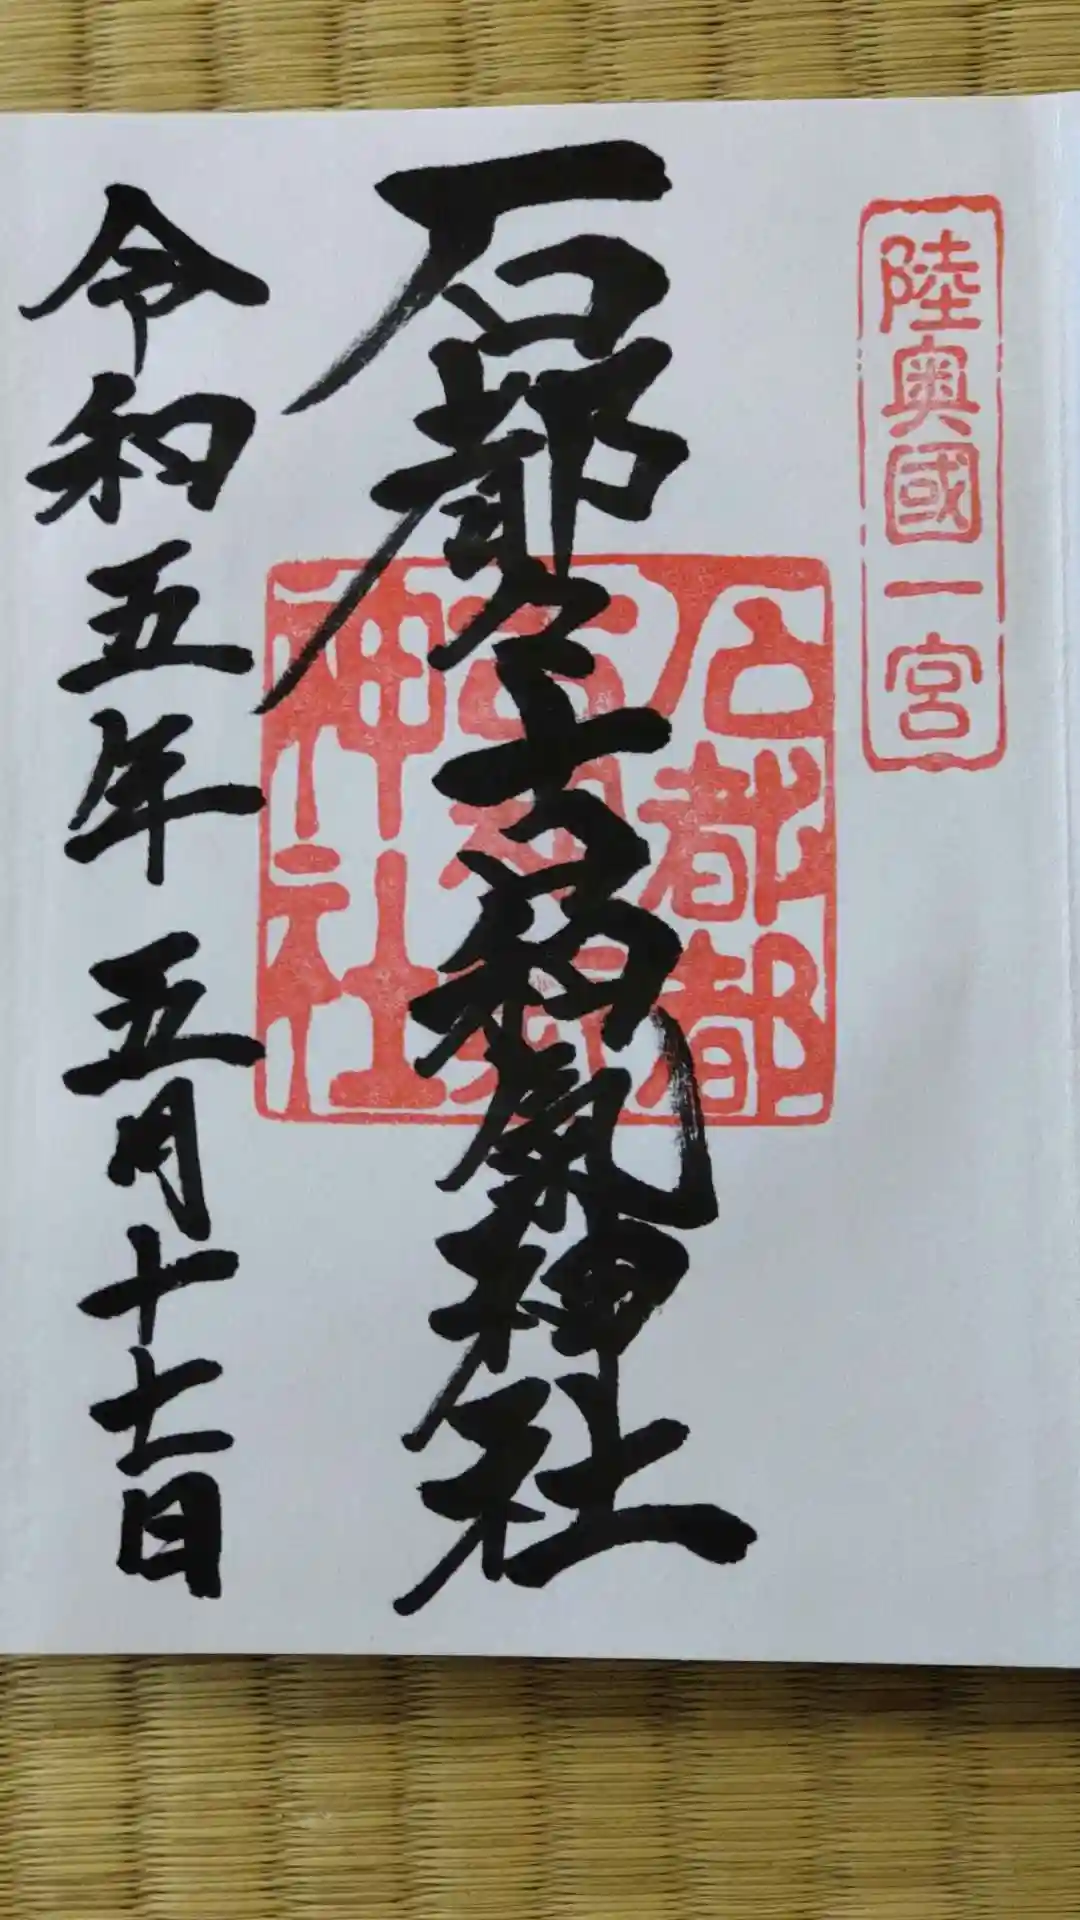 陸奥國一宮
石都々古和氣神社
石都都
古和氣
神社
令和五年 五月十七日